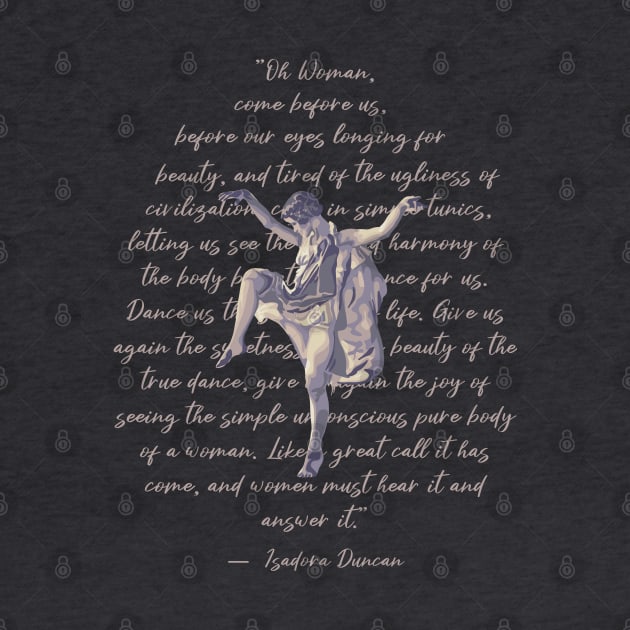 "Oh Woman,
come before us,
before our eyes longing for
beauty, and tired of the ugliness of
civilization, in simple tunics,
letting us see the harmony of
the body for us.
Dance us life. Give us
again the sweetness beauty of the
true dance, give again the joy of
seeing the simple unconscious pure body
of a woman. Like a great call it has
come, and women must hear it and
answer it."
— Isadora Duncan